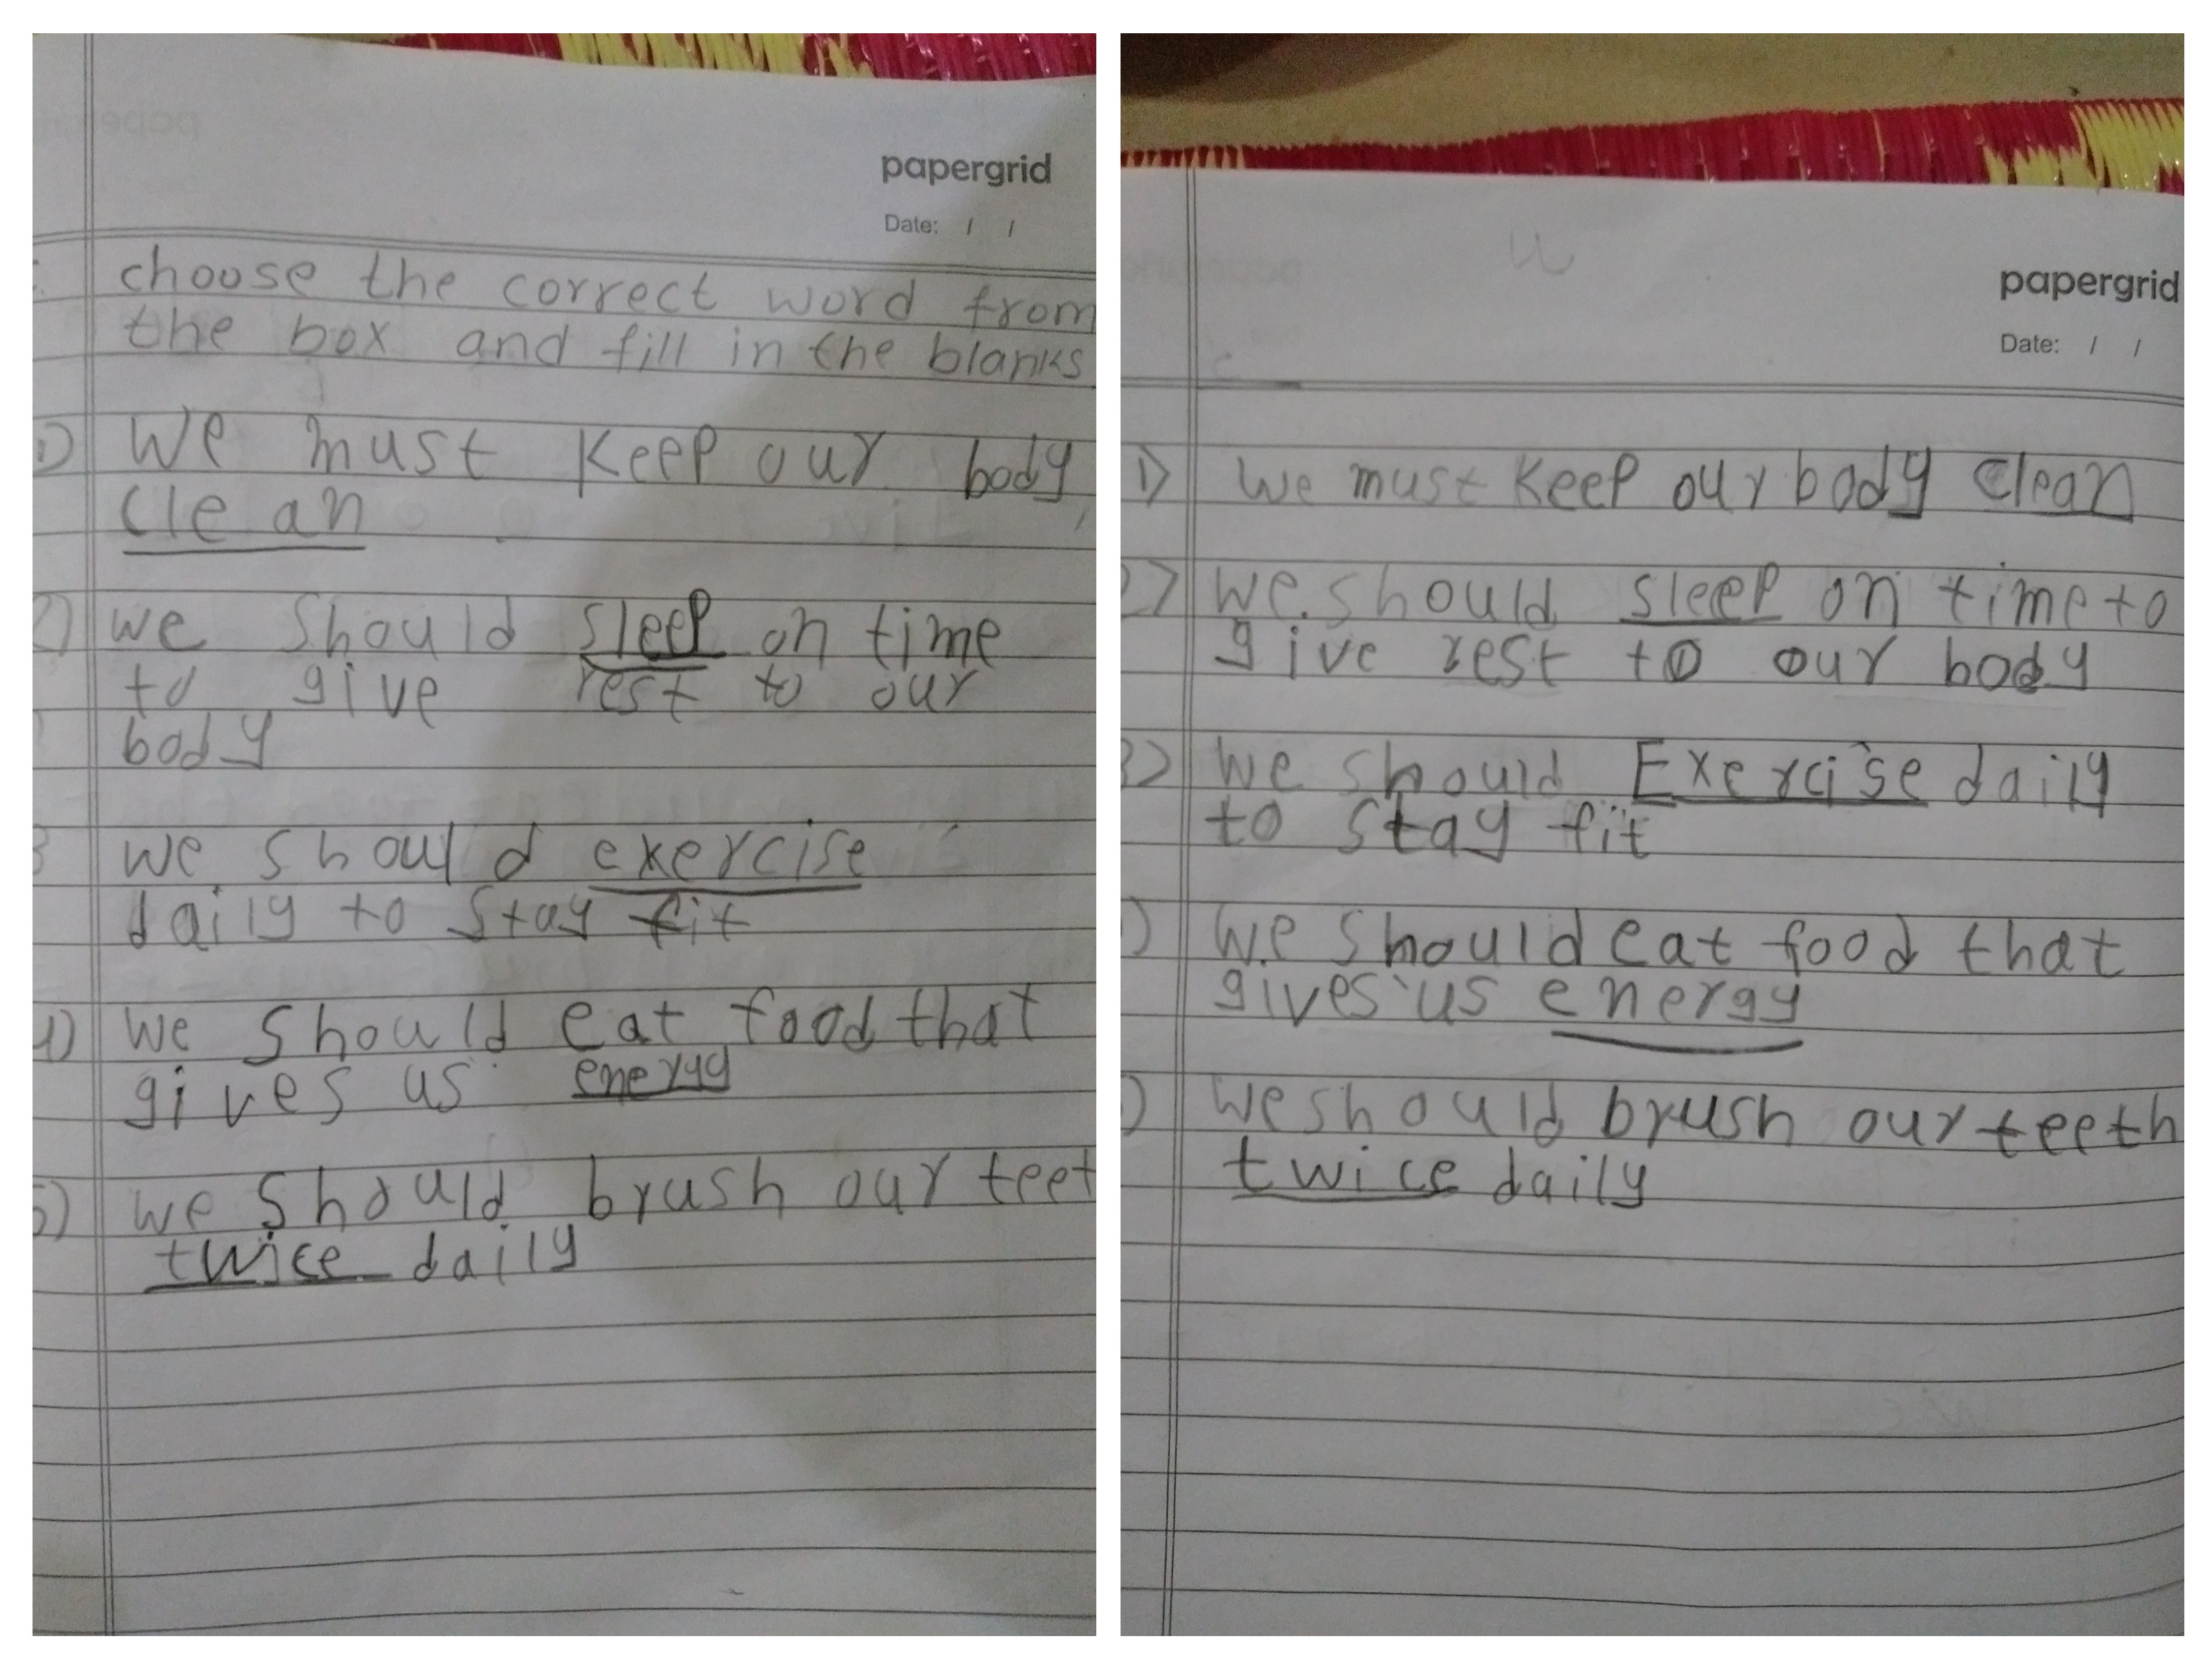 papergrid
Date: / /
choose the correct word from
the box and fill in the blanks
1) We must keep our body
clean
2) we should sleep on time
to give rest to our
body
3 we should exercise
daily to stay fit
4) we should eat food that
gives us energy
5) we should brush our teet
twice daily
papergrid
Date: / /
1) we must keep our body clean
2) we should sleep on time to
give rest to our body
3) we should Exercise daily
to stay fit
) we should eat food that
gives us energy
) we should brush our teeth
twice daily